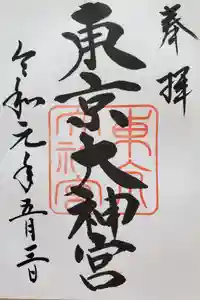 奉拝
東京大神宮
東京大神宮
令和元年五月三日